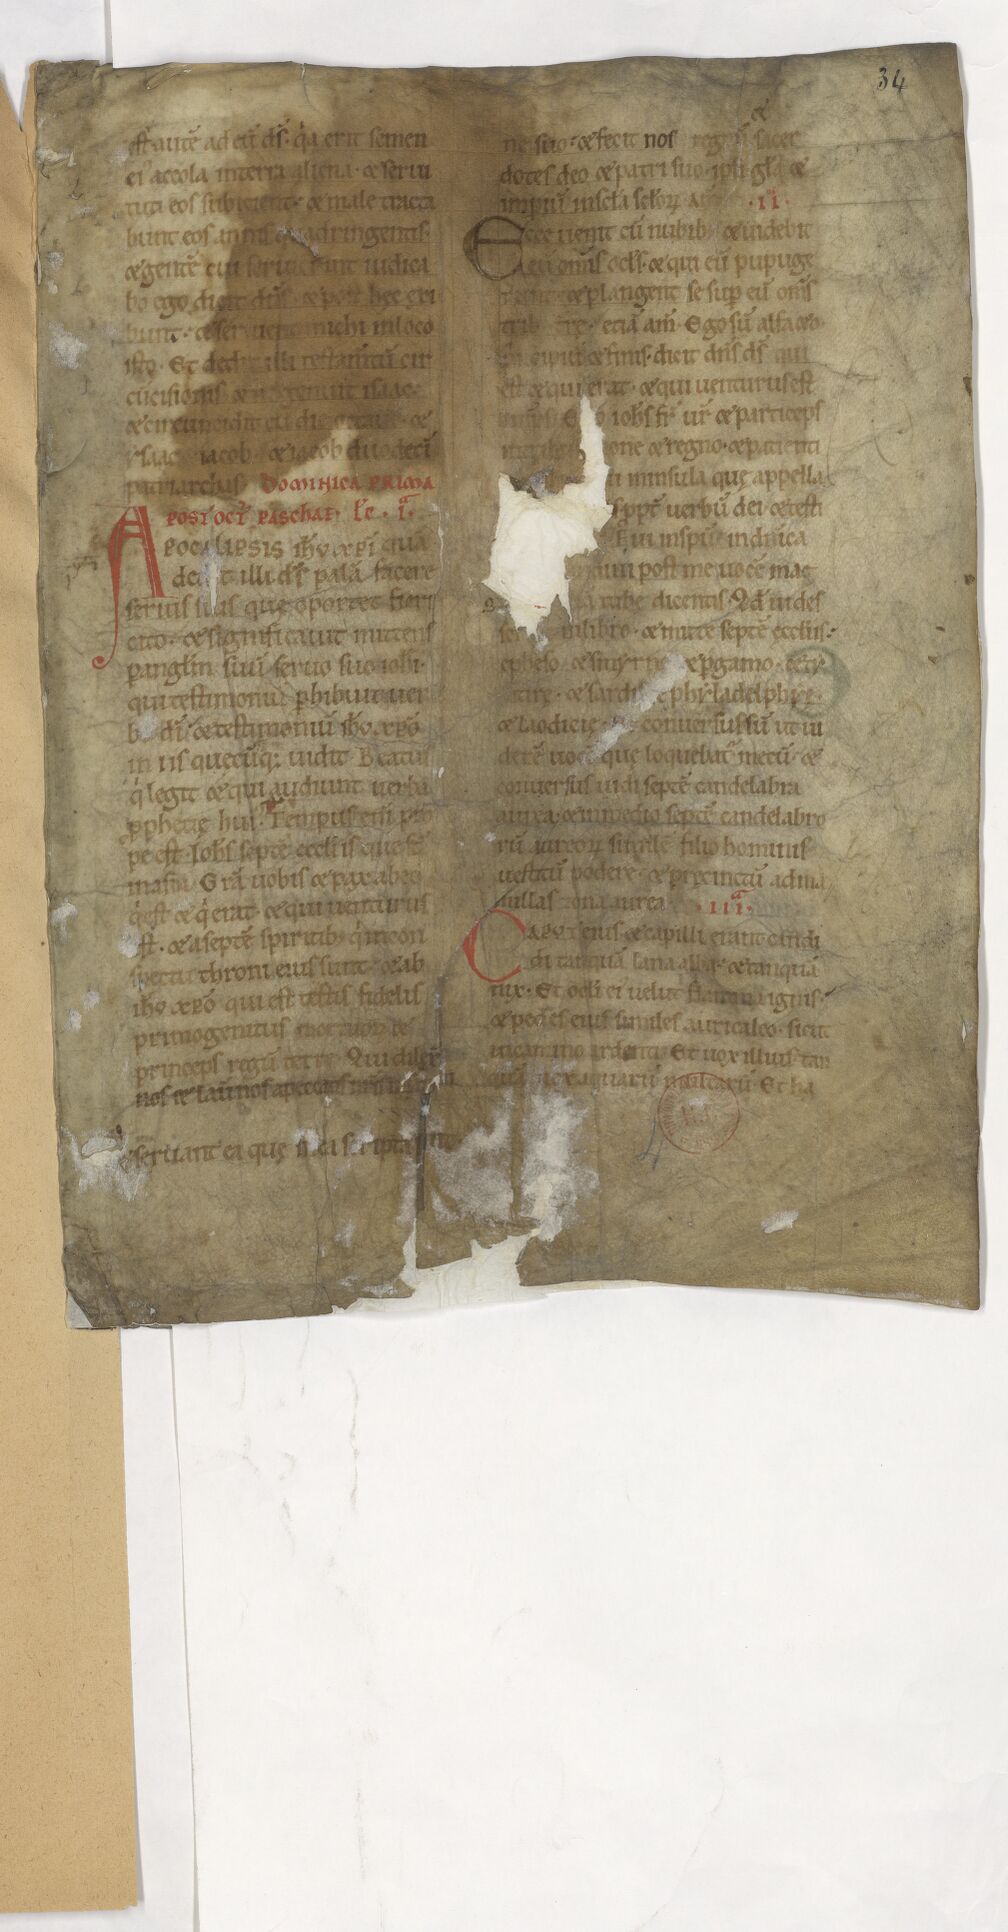 34
est autē ad eū ds̄· q̇a erit semen
ei' accola interra aliena· & serui
tuti eos subicient· & male tracta
bunt eos annis quadringentis·
& gentē cui seruierint iudica
bo ego dicit dn̄s· & post hęc exi
bunt· & seruient michi inloco
isto· Et dedit illi testam̄tū cir
cūcisionis· & genuit isaac·
& circumcidit eū die octaua· &
ysaac iacob· & iacob duodeci
patriarchas· Dominica prima
post oct̄ paschae· lc̄· ia·
Apocalipsis ih̄u xp̄i quā
dedit illi ds̄ palā facere
seruis suis que oportet fieri
cito· & significauit mittens
p angl̄m suū seruo suo ioh̄i·
qui testimoniū phibuit uer
bo di· & testimoniū ih̄u xp̄o
in iis quęcūq; uidit· Beatus
q̇ legit & qui audiunt uerba
pphetię hui'· Tempus eni pro
pe est· Ioh̄s septē ecclīis que st̄
in asia· Gr̄a uobis & pax ab eo
q̇ est & q̇ erat· & qui uenturus
est· & a septē spiritib; q̇ in con
spectu throni eius sunt· & ab
ih̄u xp̄o qui est testis fidelis
primogenitus mortuoꝝ &
princeps regū terre· Qui dilex̄
nos & lauit nos apeccatis
seruant ea quę in ea scripta sunt
ne suo· & fecit nos regnū & sacer
dotes deo & patri suo· ipsi glā &
impiū inscl̄a scl̄oꝝ am̄· ·ii·
Ecce uenit cū nubib; & uidebit
eū omīs ocls̄· & qui eū pupuge
runt· & plangent se sup eū omīs
trib; trę· etiā am̄· Ego sū alfa & o·
& finis· dicit dn̄s ds̄ qui
est & qui erat· & qui uenturus est
Ego ioh̄s fr̄ ur̄ & particeps
intribulatione & regno· & patienti
in insula quę appella
ppt̄ uerbū dei & testi
Fui inspū in dn̄ica
post me uocē mag
tubę dicentis· Qd̄ uides
inlibro· & mitte septē ecclīis·
epheso· & smyrne· & pgamo· & ty
tire· & sardis· & phyladelphyę·
& laodicię· Et conuersus sū ut ui
derē uocē quę loquebat̄ mecū· &
conuersus uidi septē candelabra
aurea· & in medio septē candelabro
rū aureoꝝ similē filio hominis·
uestitū podere· & precinctū ad ma
millas zona aurea· ·iiia·
Caput eius & capilli erant candi
di tanquā lana alba· & tanquā
nix· Et ocli ei' uelut flamma ignis·
& pedes eius similes auricalco· sicut
in camino ardenti· Et uox illius tan
quā uox aquarū multarū· Et ha